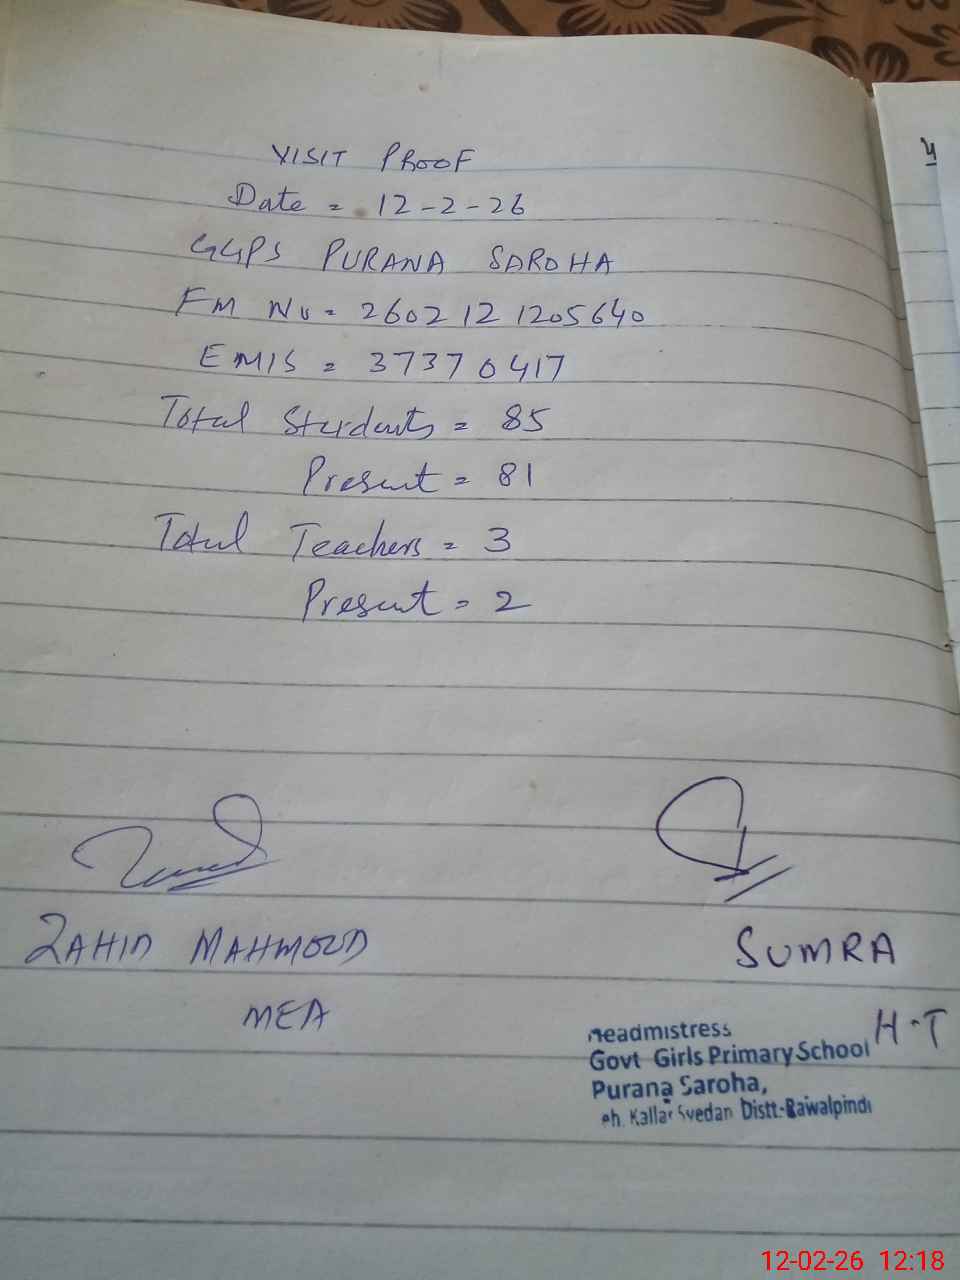 VISIT PROOF
Date = 12-2-26
GGPS PURANA SAROHA
FM No = 2602 12 1205640
EMIS = 37370417
Total Students = 85
Present = 81
Total Teachers = 3
Present = 2
ZAHID MAHMOOD
MEA
SUMRA
H-T
Headmistress
Govt Girls Primary School
Purana Saroha,
eh. Kallar Syedan Distt:-Rawalpindi
12-02-26 12:18